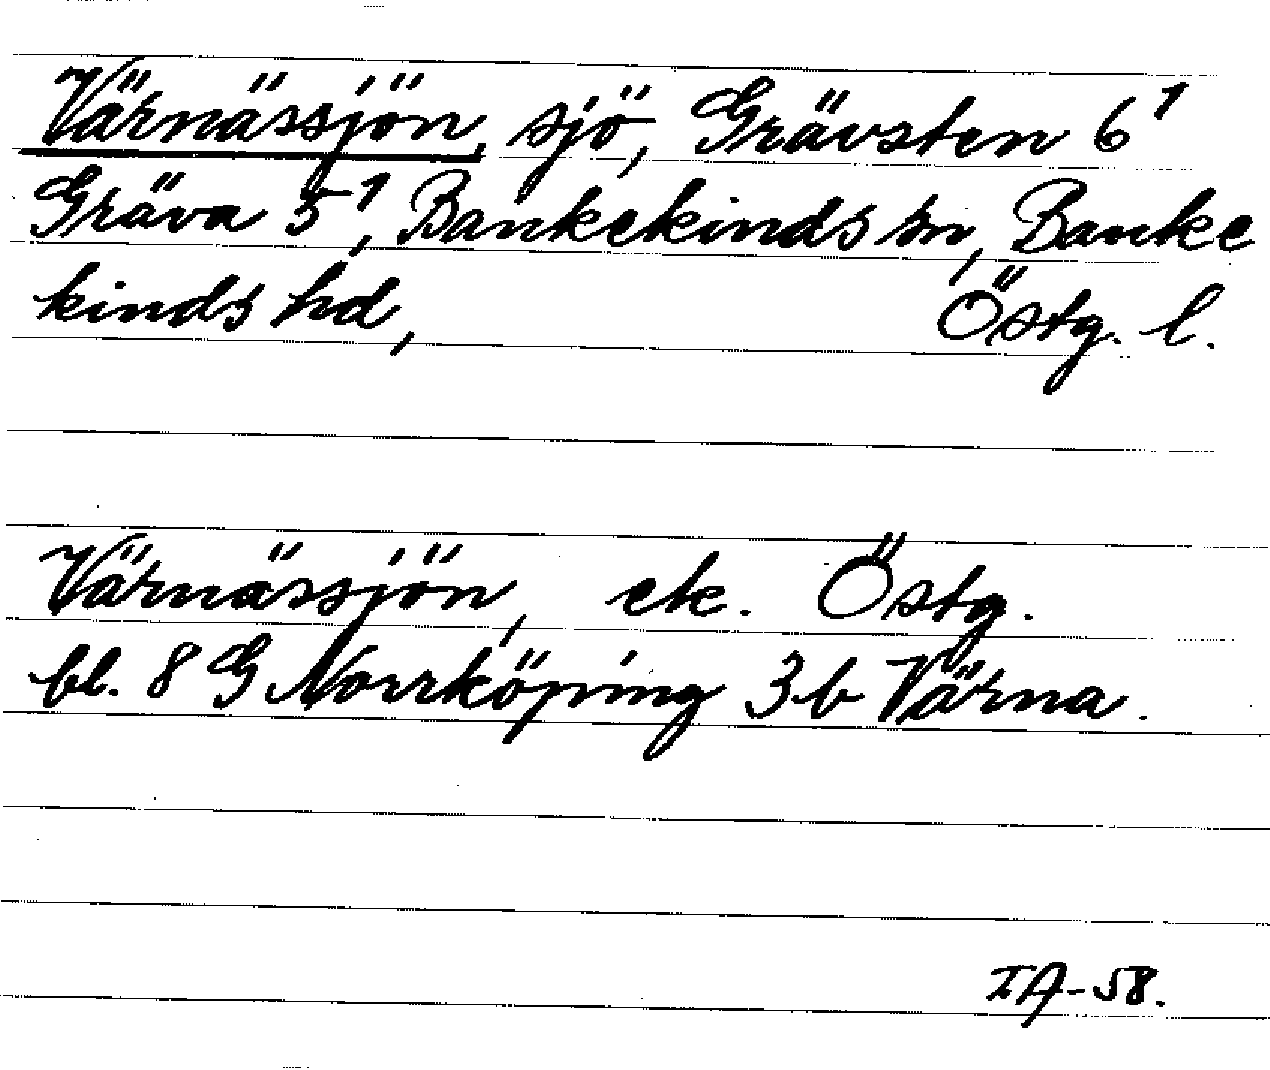 Värnässjön, sjö, Grävsten 6¹
Gräva 5¹, Bankekinds sn, Banke
kinds hd, Östg. l.
Värnässjön, ek. Östg.
bl. 8 G Norrköping 3b Värna.
IA-58.